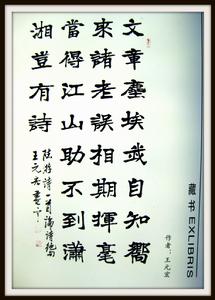 文章塵埃我自知嚮
來諸老誤相期揮毫
當得江山助不到瀟
湘豈有詩
陸游詩一首論詩
王元宏書
藏书 EXLIBRIS
作者：王元宏